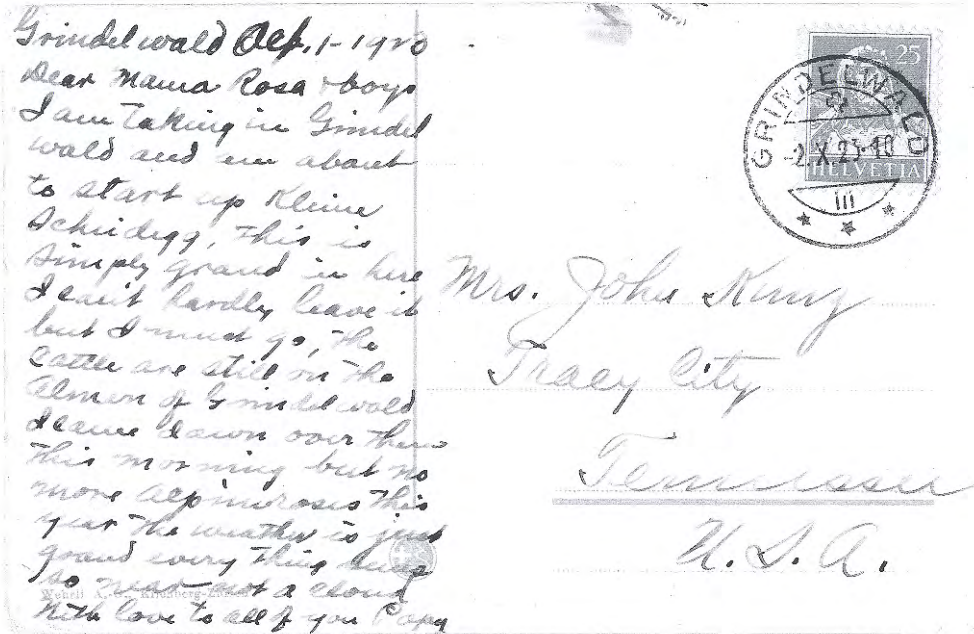 Grindelwald Oct. 1- 1920
Dear Mama Rosa & boys
I am taking in Grindel
wald and am about
to start up Kleine
Scheidegg, this is
simply grand in here
I cant hardly leave it
but I must go, the
Cattle are still on the
Almen of Grindelwald
I came down over there
this morning but no
more Alpinroses this
year the weather is just
grand every thing
so near not a cloud
With love to all of you Papa
Wehrli A.-G., Kilchberg-Zürich
25
HELVETIA
GRINDELWALD
-2.X.23-10
Mrs. John Kunz
Tracy City
Tennessee
U.S.A.